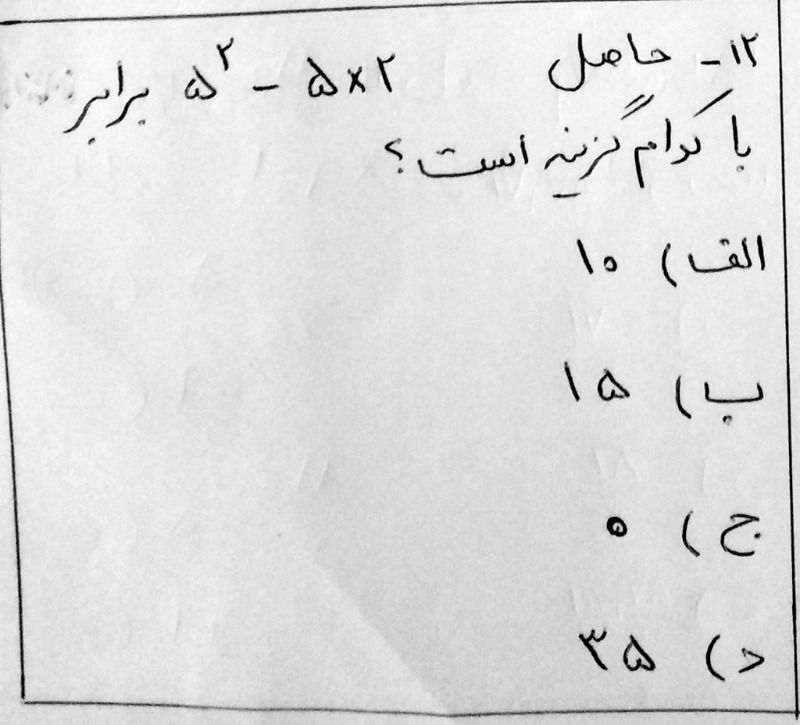 ۱۲- حاصل ۵^۲ - ۵×۲ برابر
با کدام گزینه است؟
الف) ۱۰
ب) ۱۵
ج) ۰
د) ۳۵